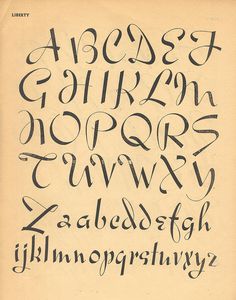 LIBERTY
ABCDEF
GHIJKLM
NOPQRS
TUVWXY
Zaabcddefgh
ijklmnopqrstuvwxyz